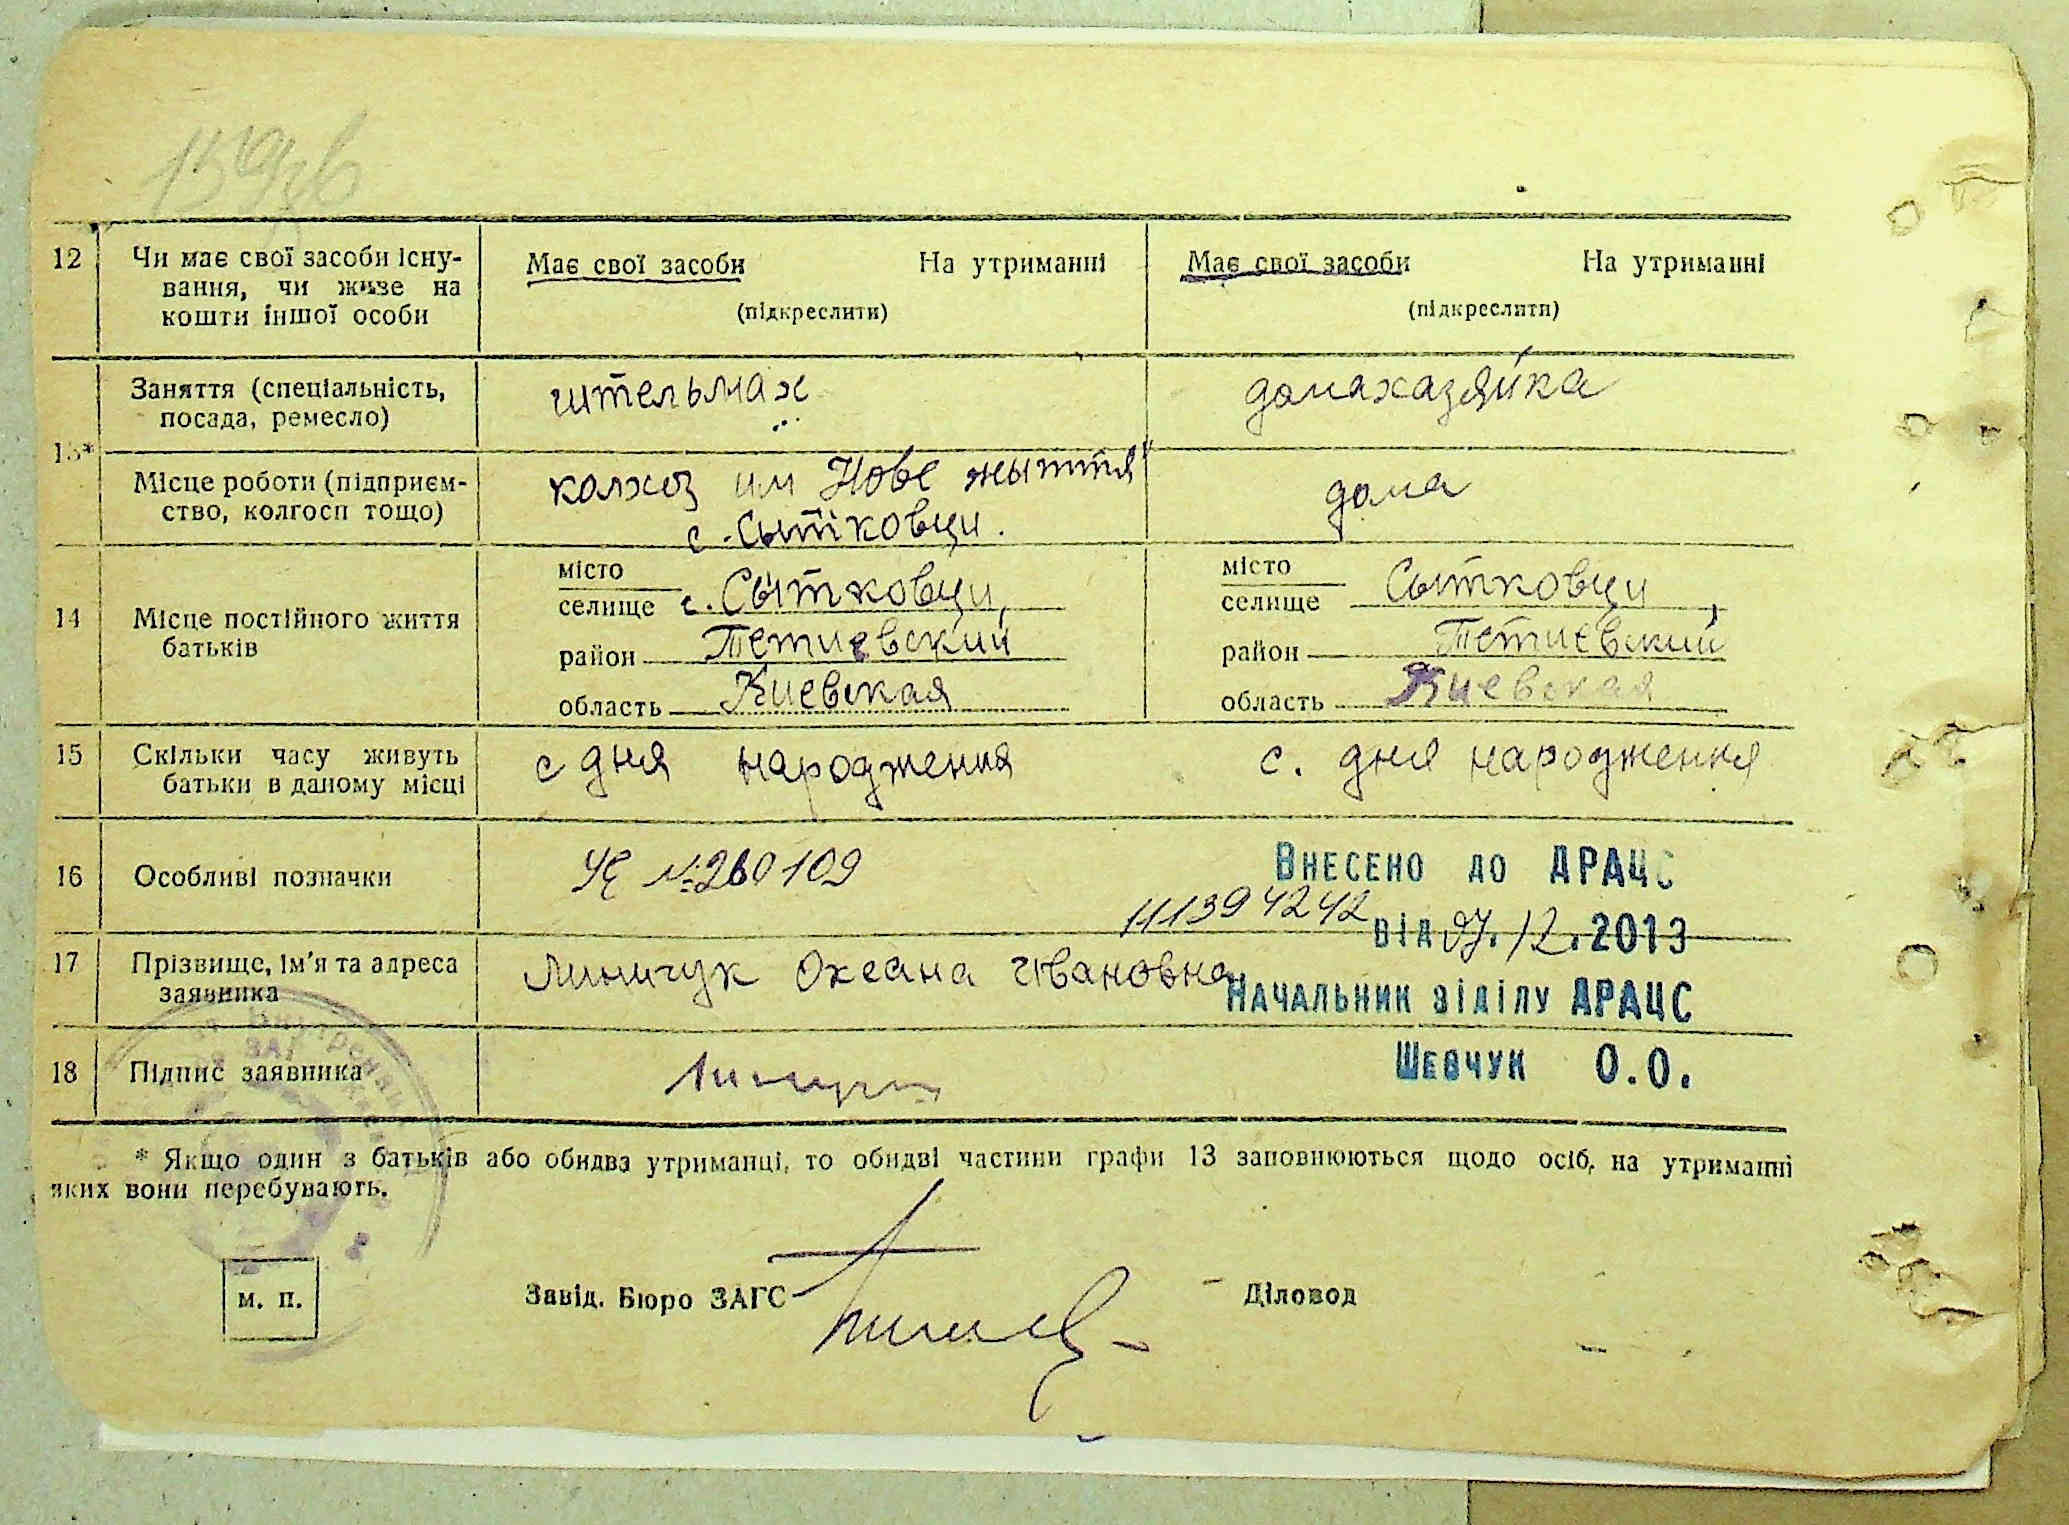 12 Чи має свої засоби існу-
вання, чи живе на
кошти іншої особи
Має свої засоби На утриманні
(підкреслити)
Має свої засоби На утриманні
(підкреслити)
13*
Заняття (спеціальність,
посада, ремесло)
штельмах
домахазяйка
Місце роботи (підприєм-
ство, колгосп тощо)
колхоз им Нове жыття"
с. Сытковци.
дома
14 Місце постійного життя
батьків
місто
селище с. Сытковци,
район Тетиевский
область Киевская
місто
селище Сытковци,
район Тетиевский
область Киевская
15 Скільки часу живуть
батьки в даному місці
с дня народження
с. дня народження
16 Особливі позначки
№260109
111394242
Внесено до ДРАЦС
від 07.12.2013
17 Прізвище, ім'я та адреса
заявника
Линичук Оксана Ивановна
Начальник відділу ДРАЦС
18 Підпис заявника
Шевчук О.О.
* Якщо один з батьків або обидва утриманці, то обидві частини графи 13 заповнюються щодо осіб, на утриманні
яких вони перебувають.
м. п.
Завід. Бюро ЗАГС
Діловод